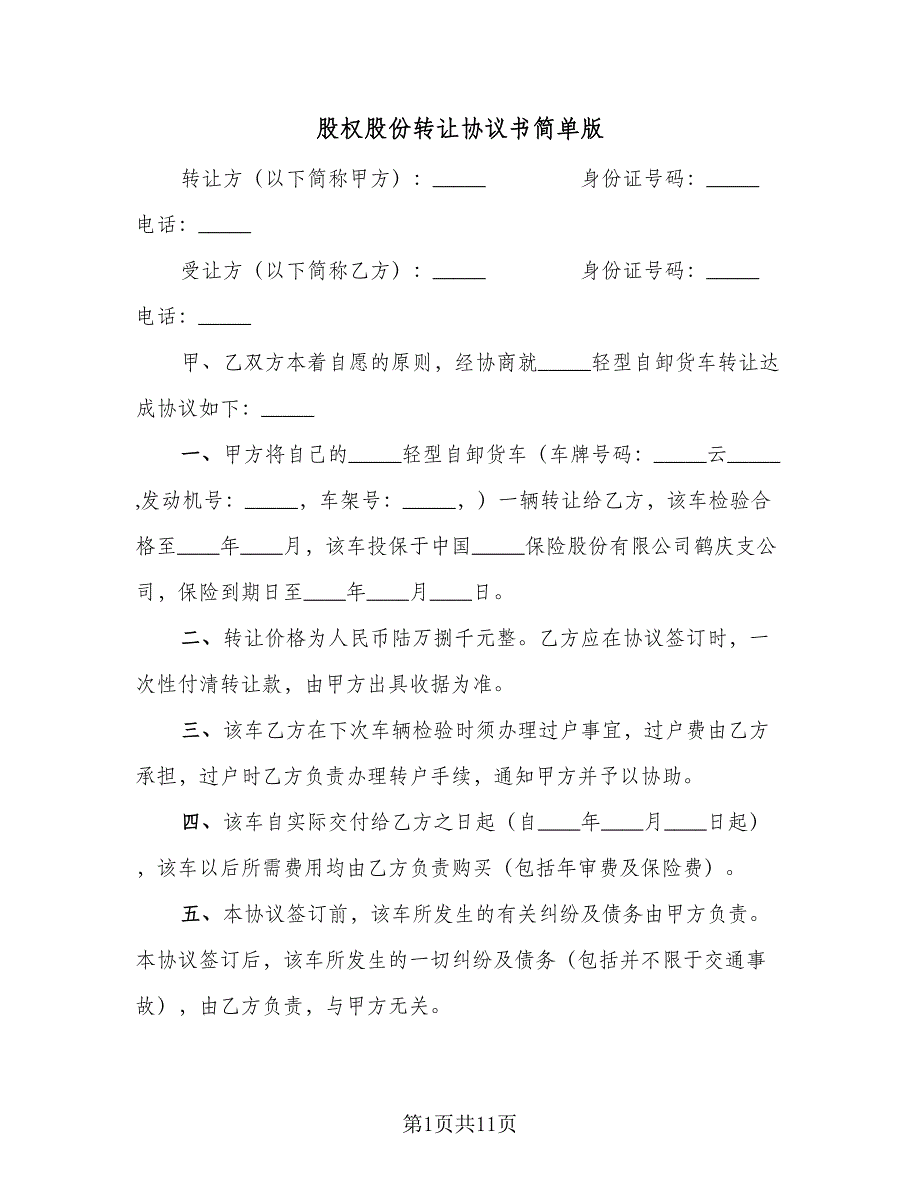 股权股份转让协议书简单版
转让方（以下简称甲方）：_____ 身份证号码：_____
电话：_____
受让方（以下简称乙方）：_____ 身份证号码：_____
电话：_____
甲、乙双方本着自愿的原则，经协商就_____轻型自卸货车转让达
成协议如下：_____
一、甲方将自己的_____轻型自卸货车（车牌号码：_____云_____
,发动机号：_____，车架号：_____，）一辆转让给乙方，该车检验合
格至____年____月，该车投保于中国_____保险股份有限公司鹤庆支公
司，保险到期日至____年____月____日。
二、转让价格为人民币陆万捌千元整。乙方应在协议签订时，一
次性付清转让款，由甲方出具收据为准。
三、该车乙方在下次车辆检验时须办理过户事宜，过户费由乙方
承担，过户时乙方负责办理转户手续，通知甲方并予以协助。
四、该车自实际交付给乙方之日起（自____年____月____日起）
，该车以后所需费用均由乙方负责购买（包括年审费及保险费）。
五、本协议签订前，该车所发生的有关纠纷及债务由甲方负责。
本协议签订后，该车所发生的一切纠纷及债务（包括并不限于交通事
故），由乙方负责，与甲方无关。
第1页共11页